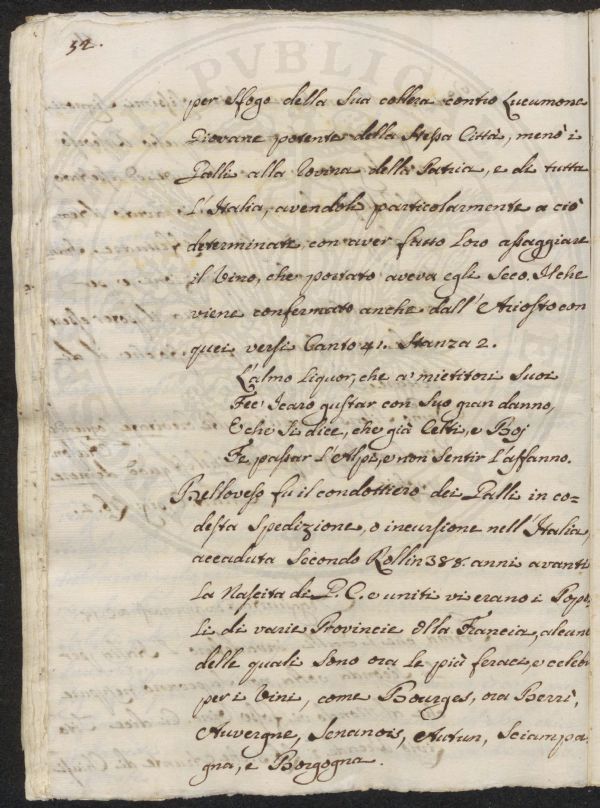 52.
per sfogo della sua collera contro Lucumone
Giovane potente della stessa Città, menò i
Galli alla rovina della Patria, e di tutta
L'Italia, avendoli particolarmente a ciò
determinati, con aver fatto loro assaggiare
il Vino, che portato aveva egli seco. Ilche
viene confermato anche dall'Ariosto con
quei versi Canto 41. Stanza 2.
L'almo Liquor, che a' mietitori suoi
Fec' Icaro gustar con suo gran danno,
E che si dice, che già Celti, e Boj
Fe passar L'Alpi, e non sentir L'affanno.
Belloveso fu il condottiero dei Galli in co=
desta spedizione, o incursione nell'Italia,
accaduta secondo Rollin 388. anni avanti
La Nascita di G. C. e uniti vi erano i Popo
li di varie Provincie dlla Francia, alcun
delle quali sono ora le più feraci, e celebr
per i Vini, come Bourges, ora Berri,
Auvergne, Senanois, Autun, Sciampa
gna, e Borgogna.